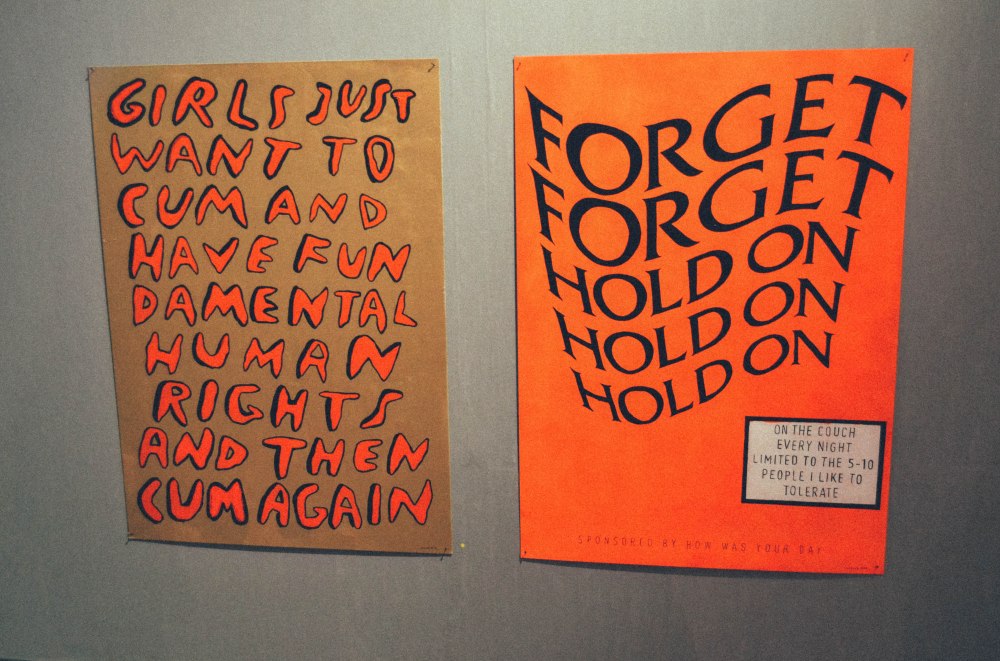 GIRLS JUST
WANT TO
CUM AND
HAVE FUN
DAMENTAL
HUMAN
RIGHTS
AND THEN
CUM AGAIN
FORGET
FORGET
HOLD ON
HOLD ON
HOLD ON
ON THE COUCH
EVERY NIGHT
LIMITED TO THE 5-10
PEOPLE I LIKE TO
TOLERATE
SPONSORED BY HOW WAS YOUR DAY